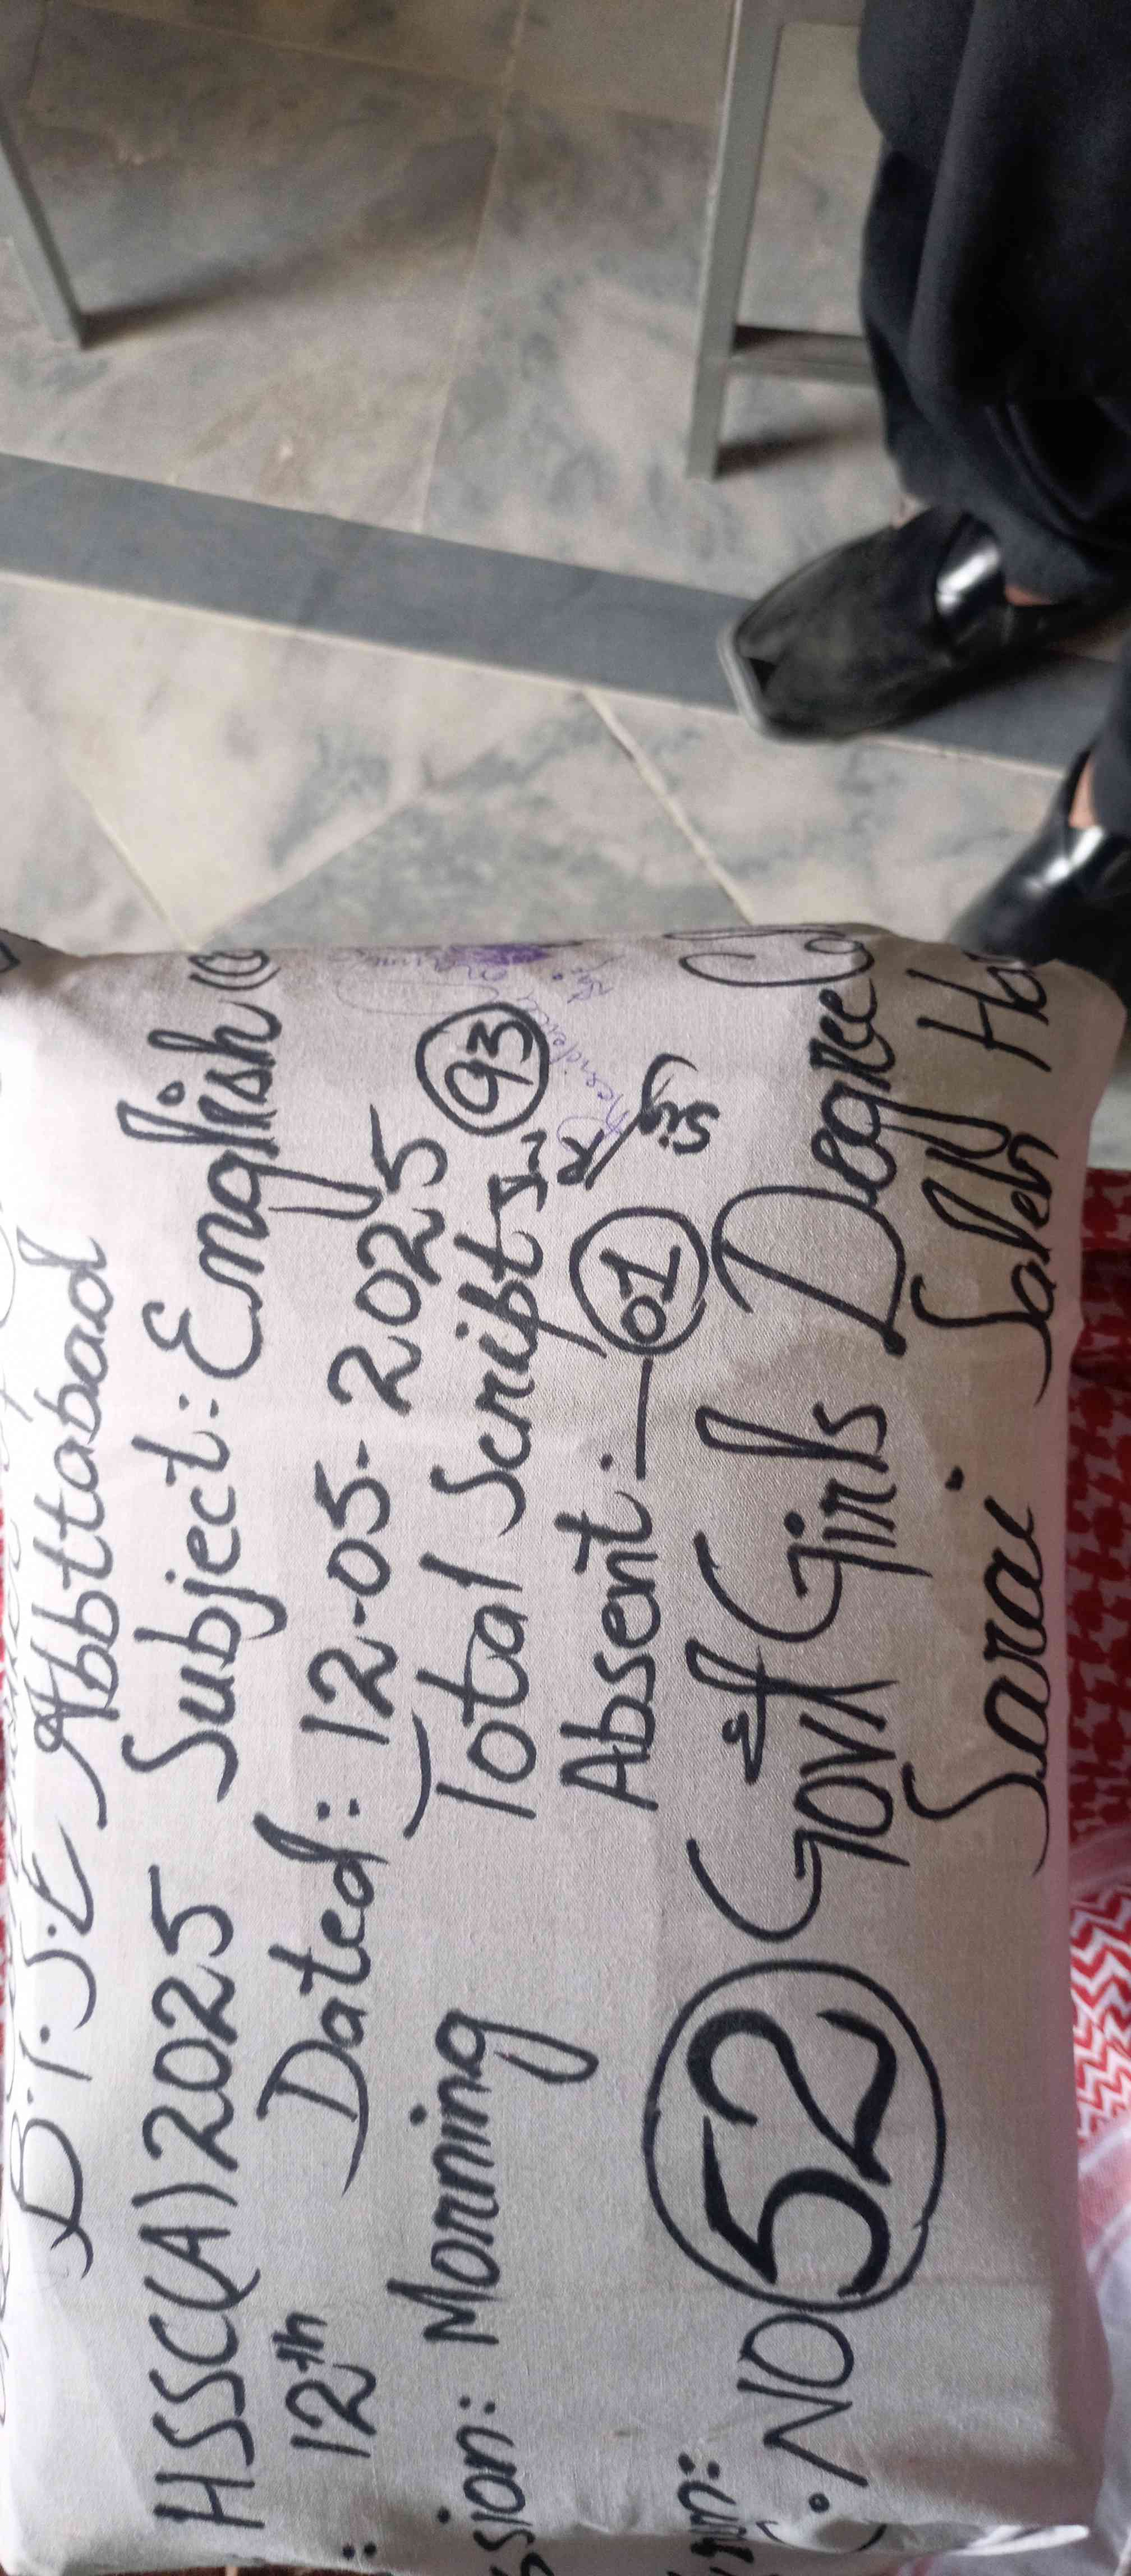 B.I.S.E Abbttabad
HSSC(A)2025 Subject: English
12th Dated: 12-05-2025
sion: Morning Total Script 93
Absent: 01
From:
NO 52 Govt Girls Degree
Sarai Saleh